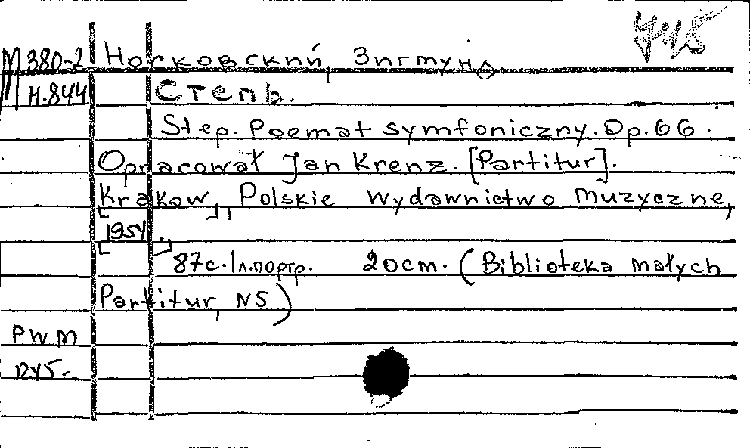 445
М 380-2 Носковский, Зигмунд
Н-844 Степь.
Step. Poemat symfoniczny. Op. 66.
Opracował Jan Krenz. [Partitur].
[Krakow], Polskie wydawnictwo muzyczne,
[1954].
87с. 1л.портр. 20cm. (Biblioteka małych
Partitur, N5)
PWM